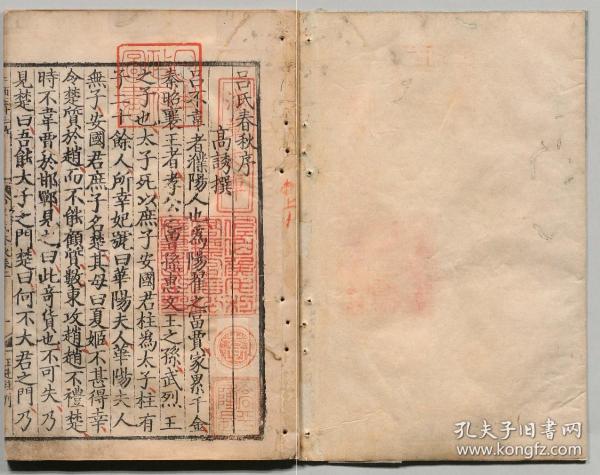 呂氏春秋序
高誘撰
呂不韋者濮陽人也為陽翟之富賈家累千金
秦昭襄王者孝公之曾孫惠文王之孫武烈王
之子也太子死以庶子安國君柱為太子柱有
子二十餘人所幸妃號曰華陽夫人華陽夫人
無子安國君庶子名楚其母曰夏姬不甚得幸
令楚質於趙而不能顧質數東攻趙趙不禮楚
時不韋賈於邯鄲見之曰此奇貨也不可失乃
見楚曰吾能大子之門楚曰何不大君之門乃
孔夫子旧书网
www.kongfz.com